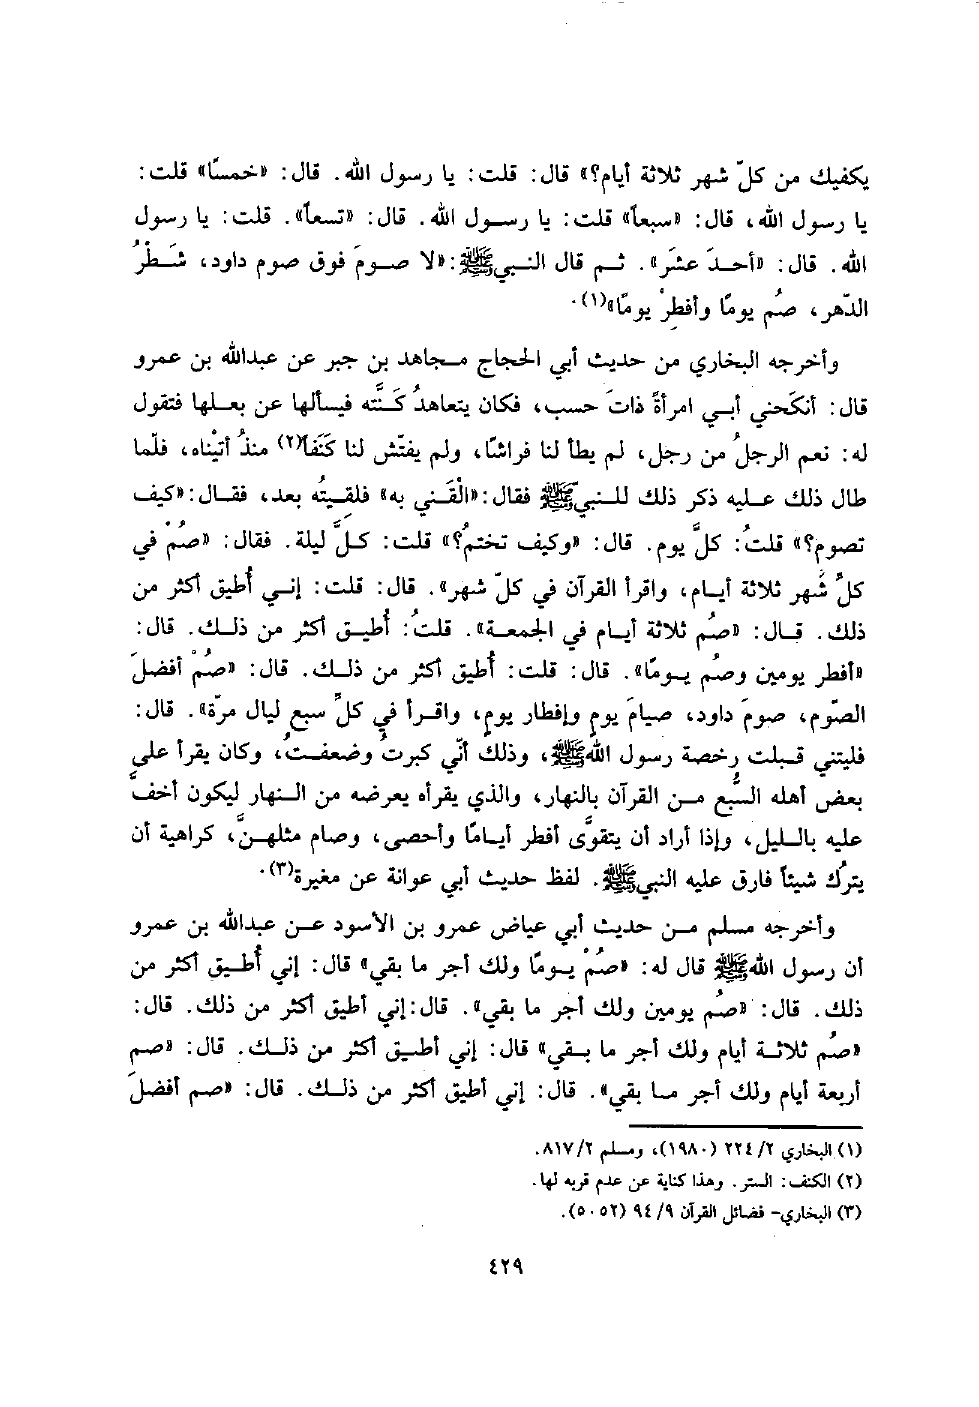 يكفيك من كلّ شهر ثلاثة أيام؟» قال: قلت: يا رسول الله. قال: «خمسًا» قلت:
يا رسول الله، قال: «سبعاً» قلت: يا رسول الله. قال: «تسعاً». قلت: يا رسول
الله. قال: «أحدَ عشَر». ثم قال النبيﷺ:«لا صومَ فوق صوم داود، شَطْرُ
الدّهر، صُم يومًا وأفطِرْ يومًا»(١).
وأخرجه البخاري من حديث أبي الحجاج مجاهد بن جبر عن عبدالله بن عمرو
قال: أنكَحني أبي امرأةً ذاتَ حسب، فكان يتعاهدُ كَنَّته فيسألها عن بعلها فتقول
له: نعم الرجلُ من رجل، لم يطأ لنا فراشًا، ولم يفتّش لنا كَنَفًا(٢) منذُ أتيْناه، فلّما
طال ذلك عليه ذكر ذلك للنبيﷺ فقال:«الْقَني به» فلقِيتُه بعد، فقال:«كيف
تصوم؟» قلتُ: كلَّ يوم. قال: «وكيف تختمُ؟» قلت: كلَّ ليلة. فقال: «صُمْ في
كلِّ شهر ثلاثة أيام، واقرأ القرآن في كلّ شهر». قال: قلت: إني أُطيق أكثر من
ذلك. قال: «صُم ثلاثة أيام في الجمعة». قلتُ: أُطيق أكثر من ذلك. قال:
«أفطر يومين وصُم يومًا». قال: قلت: أُطيق أكثر من ذلك. قال: «صُمْ أفضلَ
الصّوم، صومَ داود، صيامَ يومٍ وإفطار يوم، واقرأ في كلِّ سبع ليال مرّة». قال:
فليتني قبلت رخصة رسول اللهﷺ، وذلك أنّي كبرتُ وضعفتُ، وكان يقرأ على
بعض أهله السُّبع من القرآن بالنهار، والذي يقرأه يعرضه من النهار ليكون أخفَّ
عليه بالليل، وإذا أراد أن يتقوَّى أفطر أيامًا وأحصى، وصام مثلهنَّ، كراهية أن
يترُك شيئاً فارق عليه النبيﷺ. لفظ حديث أبي عوانة عن مغيرة(٣).
وأخرجه مسلم من حديث أبي عياض عمرو بن الأسود عن عبدالله بن عمرو
أن رسول اللهﷺ قال له: «صُمْ يومًا ولك أجر ما بقي» قال: إني أُطيق أكثر من
ذلك. قال: «صُم يومين ولك أجر ما بقي». قال:إني أطيق أكثر من ذلك. قال:
«صُم ثلاثة أيام ولك أجر ما بقي» قال: إني أطيق أكثر من ذلك. قال: «صم
أربعة أيام ولك أجر ما بقي». قال: إني أطيق أكثر من ذلك. قال: «صم أفضلَ
(١) البخاري ٢٢٤/٢ (١٩٨٠)، ومسلم ٨١٧/٢.
(٢) الكنف: الستر. وهذا كناية عن عدم قربه لها.
(٣) البخاري- فضائل القرآن ٩٤/٩ (٥٠٥٢).
٤٢٩